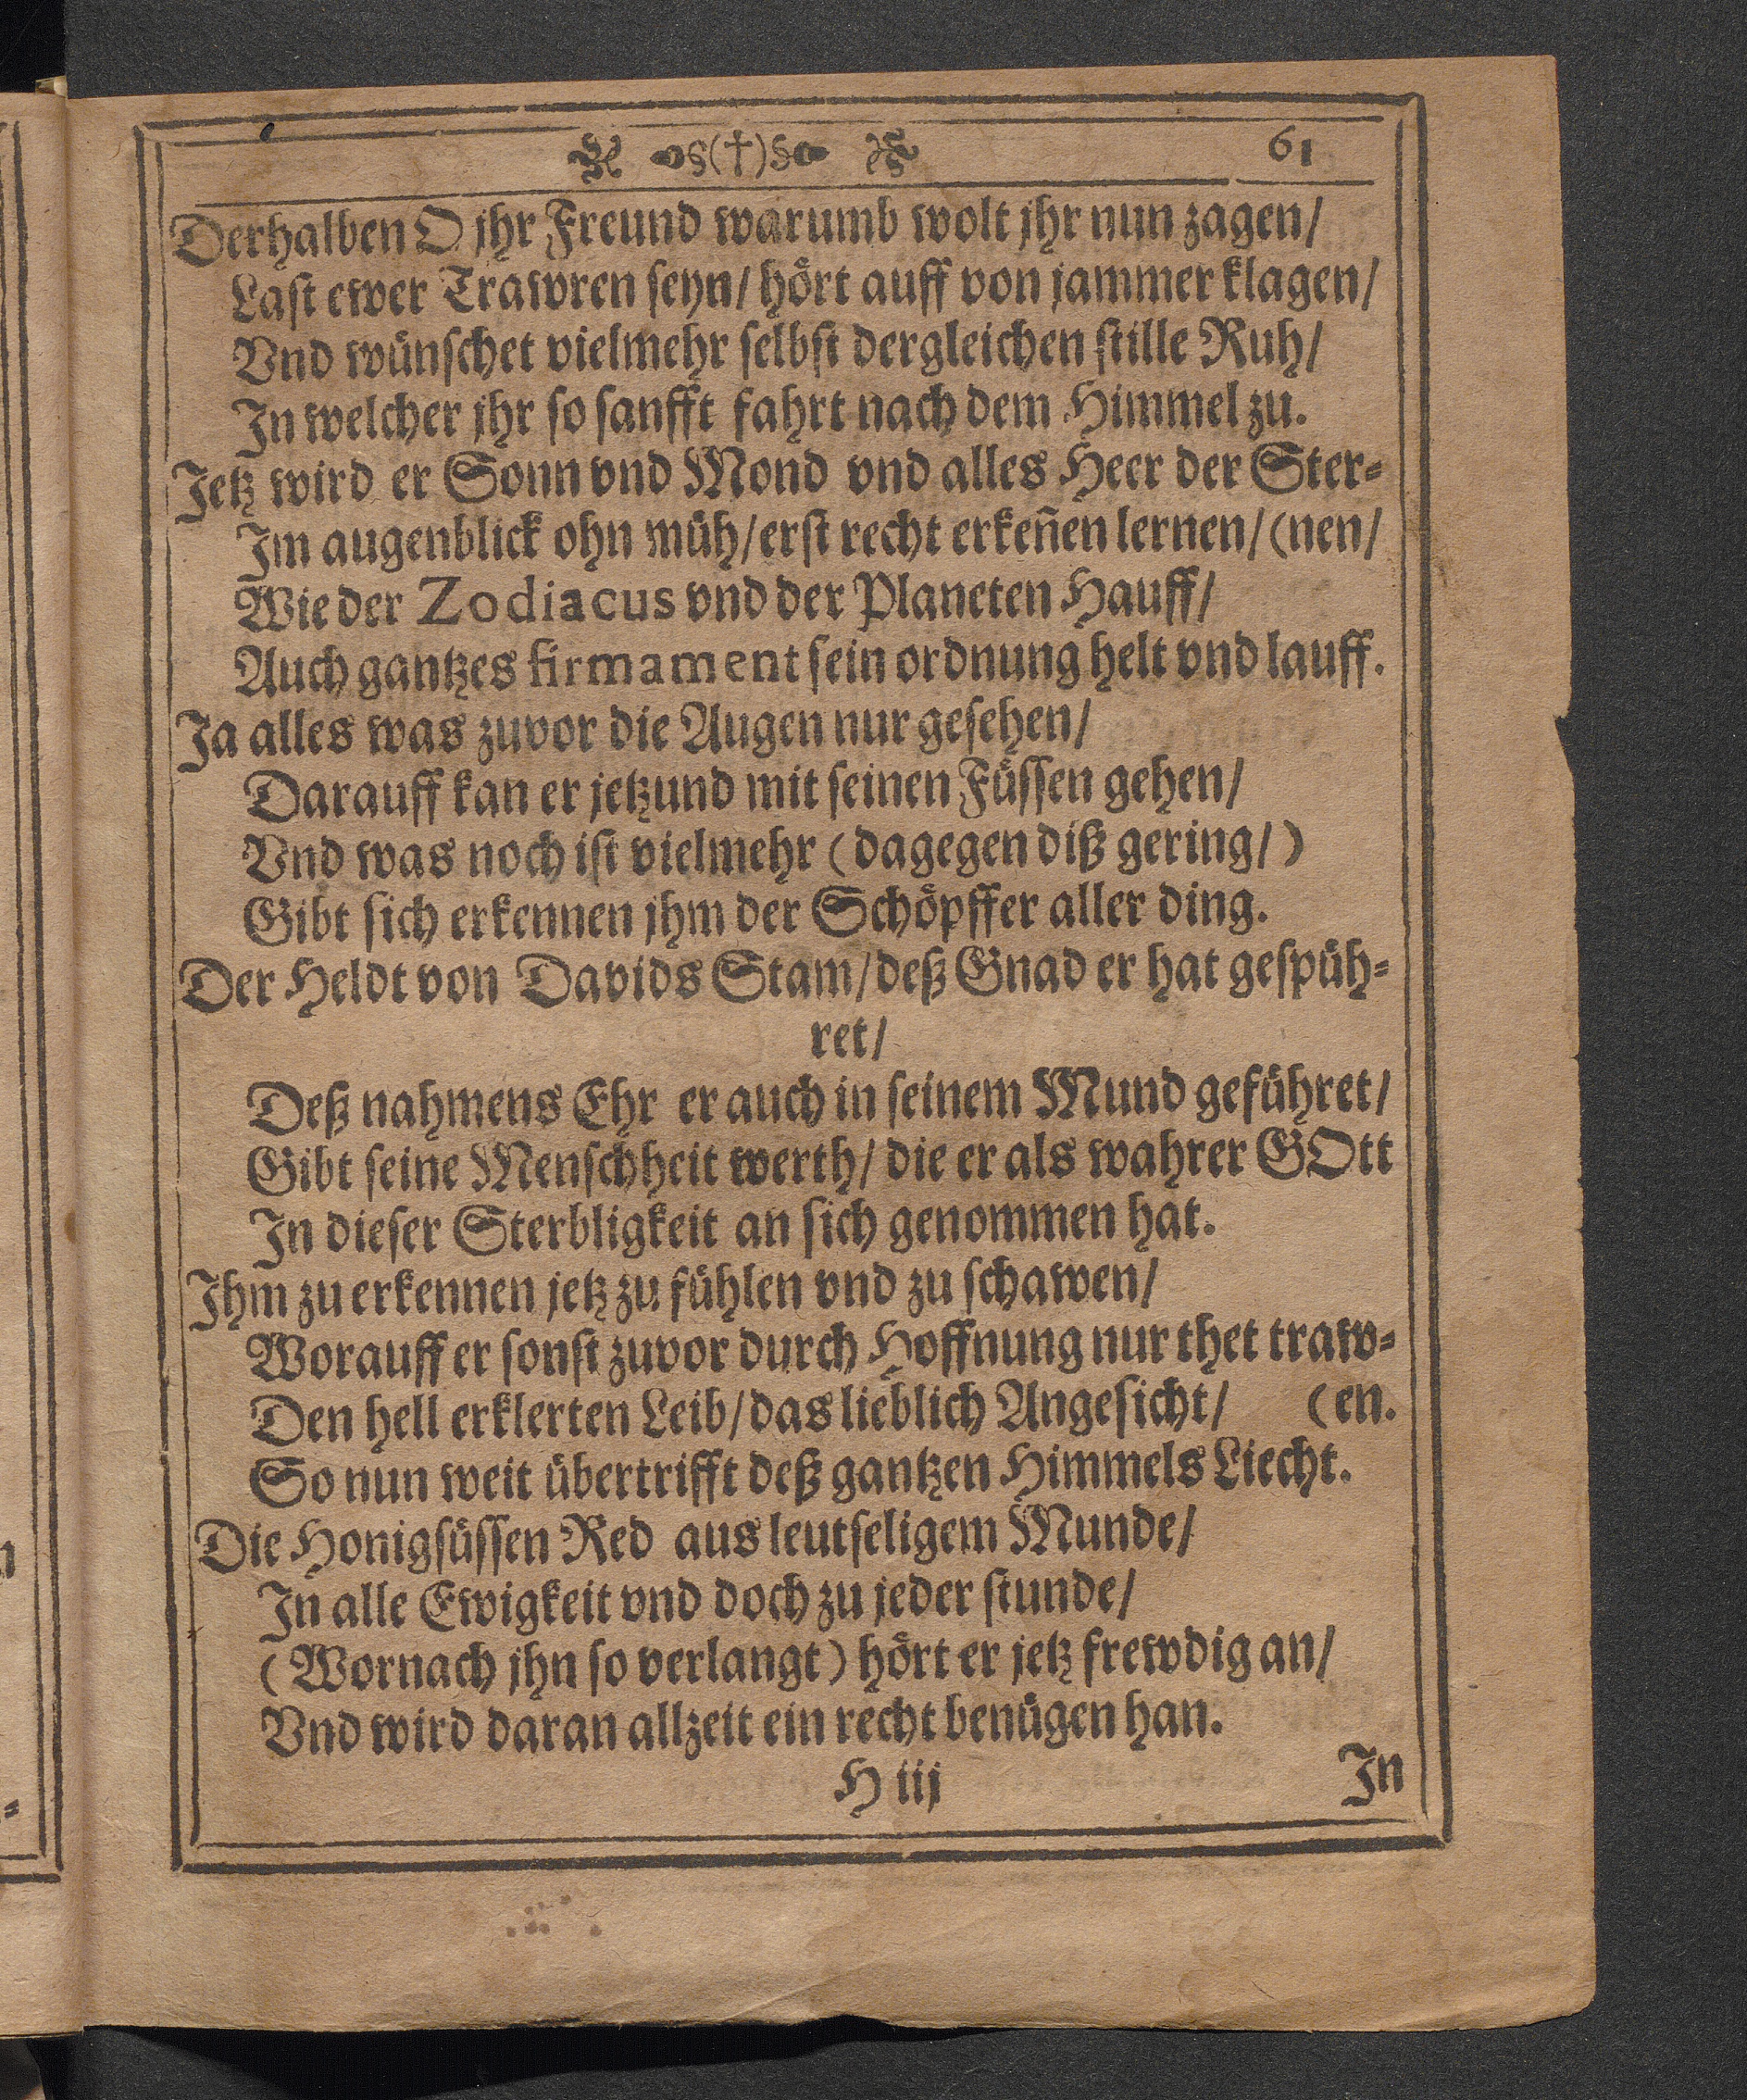 §(†)§ 61
Derhalben O jhr Freund warumb wolt jhr nun zagen/
Last ewer Trawren seyn/ hört auff von jammer klagen/
Vnd wünschet vielmehr selbst dergleichen stille Ruh/
In welcher jhr so sanfft fahrt nach dem Himmel zu.
Jetz wird er Sonn vnd Mond vnd alles Heer der Ster-
Im augenblick ohn müh/ erst recht erkeñen lernen/ (nen/
Wie der Zodiacus vnd der Planeten Hauff/
Auch gantzes firmament sein ordnung helt vnd lauff.
Ja alles was zuvor die Augen nur gesehen/
Darauff kan er jetzund mit seinen Füssen gehen/
Vnd was noch ist vielmehr (dagegen diß gering/)
Gibt sich erkennen jhm der Schöpffer aller ding.
Der Heldt von Davids Stam/ deß Gnad er hat gespüh-
ret/
Deß nahmens Ehr er auch in seinem Mund geführet/
Gibt seine Menschheit werth/ die er als wahrer GOtt
In dieser Sterbligkeit an sich genommen hat.
Ihm zu erkennen jetz zu fühlen vnd zu schawen/
Worauff er sonst zuvor durch Hoffnung nur thet traw-
Den hell erklerten Leib/ das lieblich Angesicht/ (en.
So nun weit übertrifft deß gantzen Himmels Liecht.
Die Honigsüssen Red aus leutseligem Munde/
In alle Ewigkeit vnd doch zu jeder stunde/
(Wornach jhn so verlangt) hört er jetz frewdig an/
Vnd wird daran allzeit ein recht benügen han.
H iij In